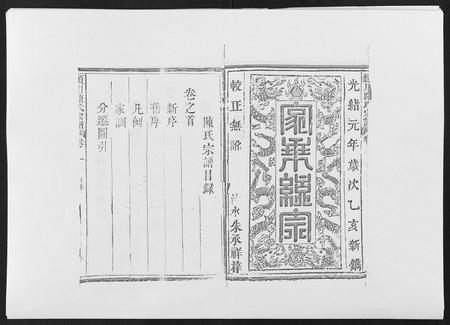 光緒元年歲次乙亥新鐫
家乘繩宗
較正無訛
水朱承祥
陳氏宗譜目錄
卷之首
新序
舊序
凡例
家訓
分遷圖引